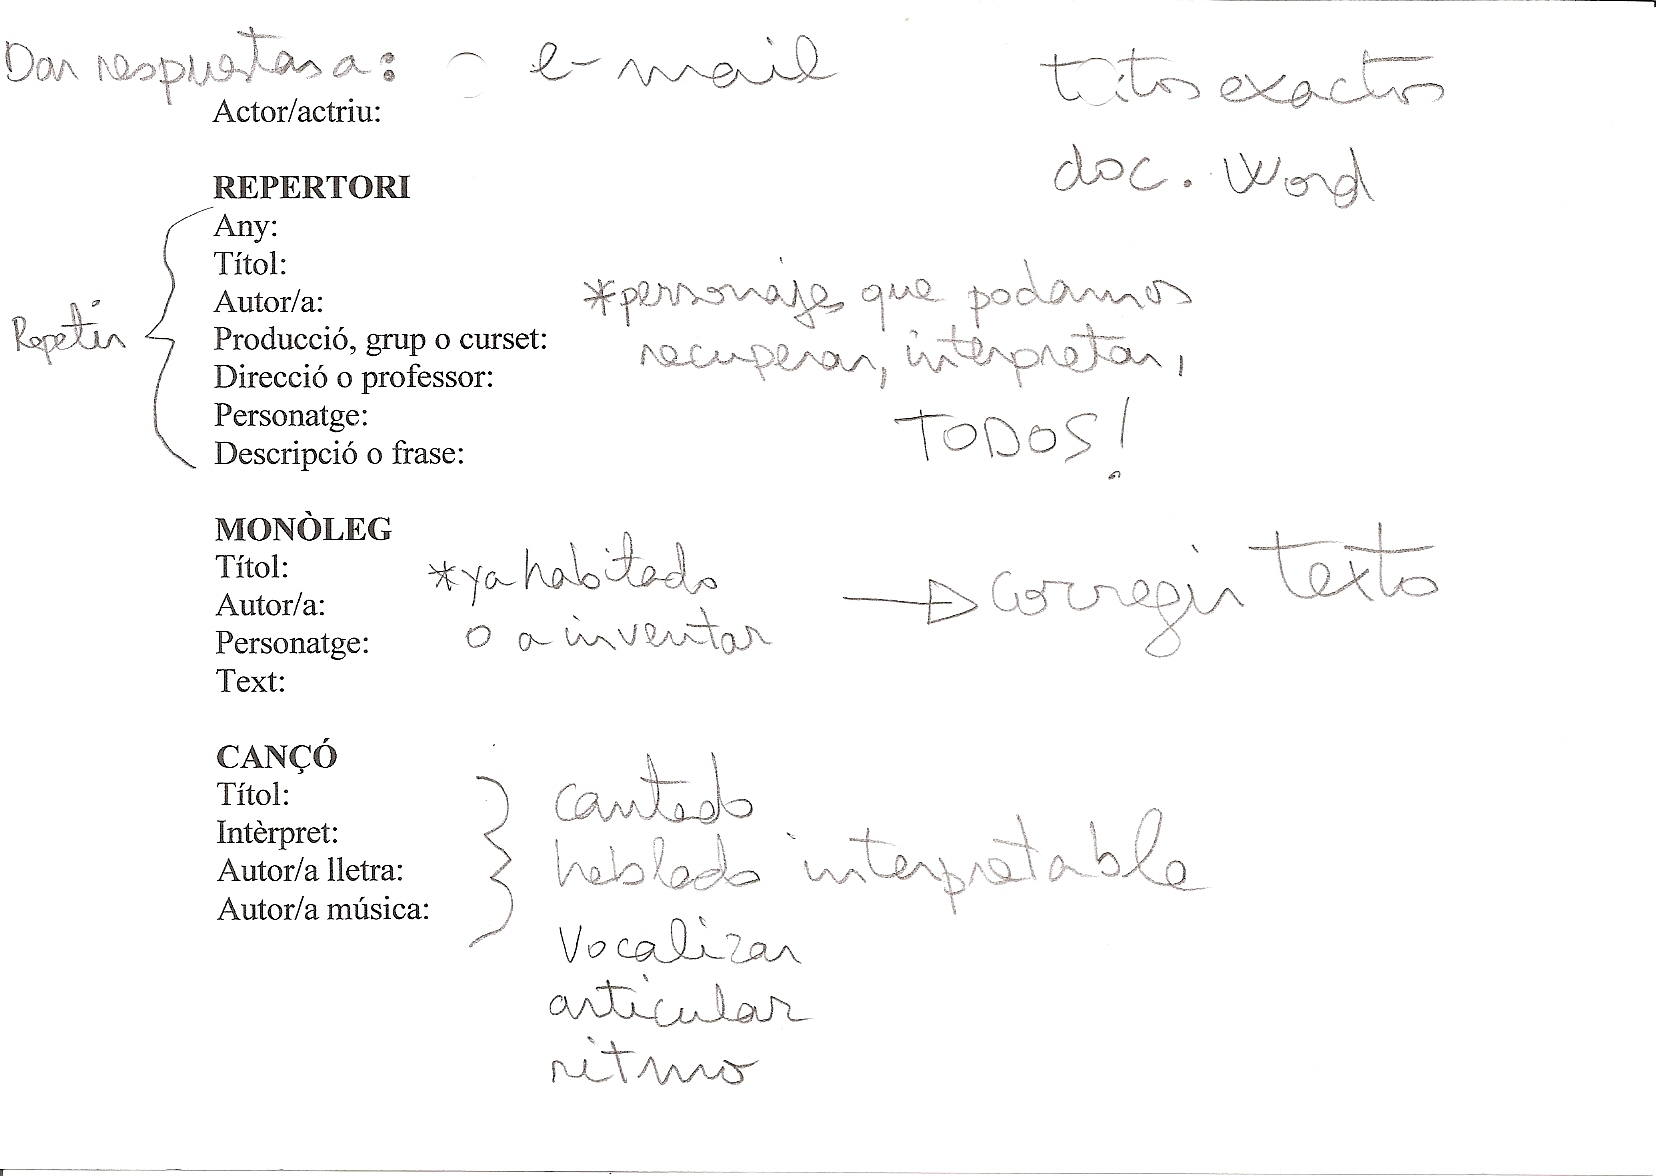 Dar respuestas a: - e-mail
titos exactos
Actor/actriu:
doc. Word
REPERTORI
Any:
Títol:
Autor/a:
*personajes que podamos
Repetir
Producció, grup o curset:
recuperar, interpretar,
Direcció o professor:
Personatge:
TODOS!
Descripció o frase:
MONÒLEG
Títol:
*ya habitado
→ corregir texto
Autor/a:
o a inventar
Personatge:
Text:
CANÇÓ
Títol:
cantado
Intèrpret:
Autor/a lletra:
hablado interpretable
Autor/a música:
Vocalizar
articular
ritmo